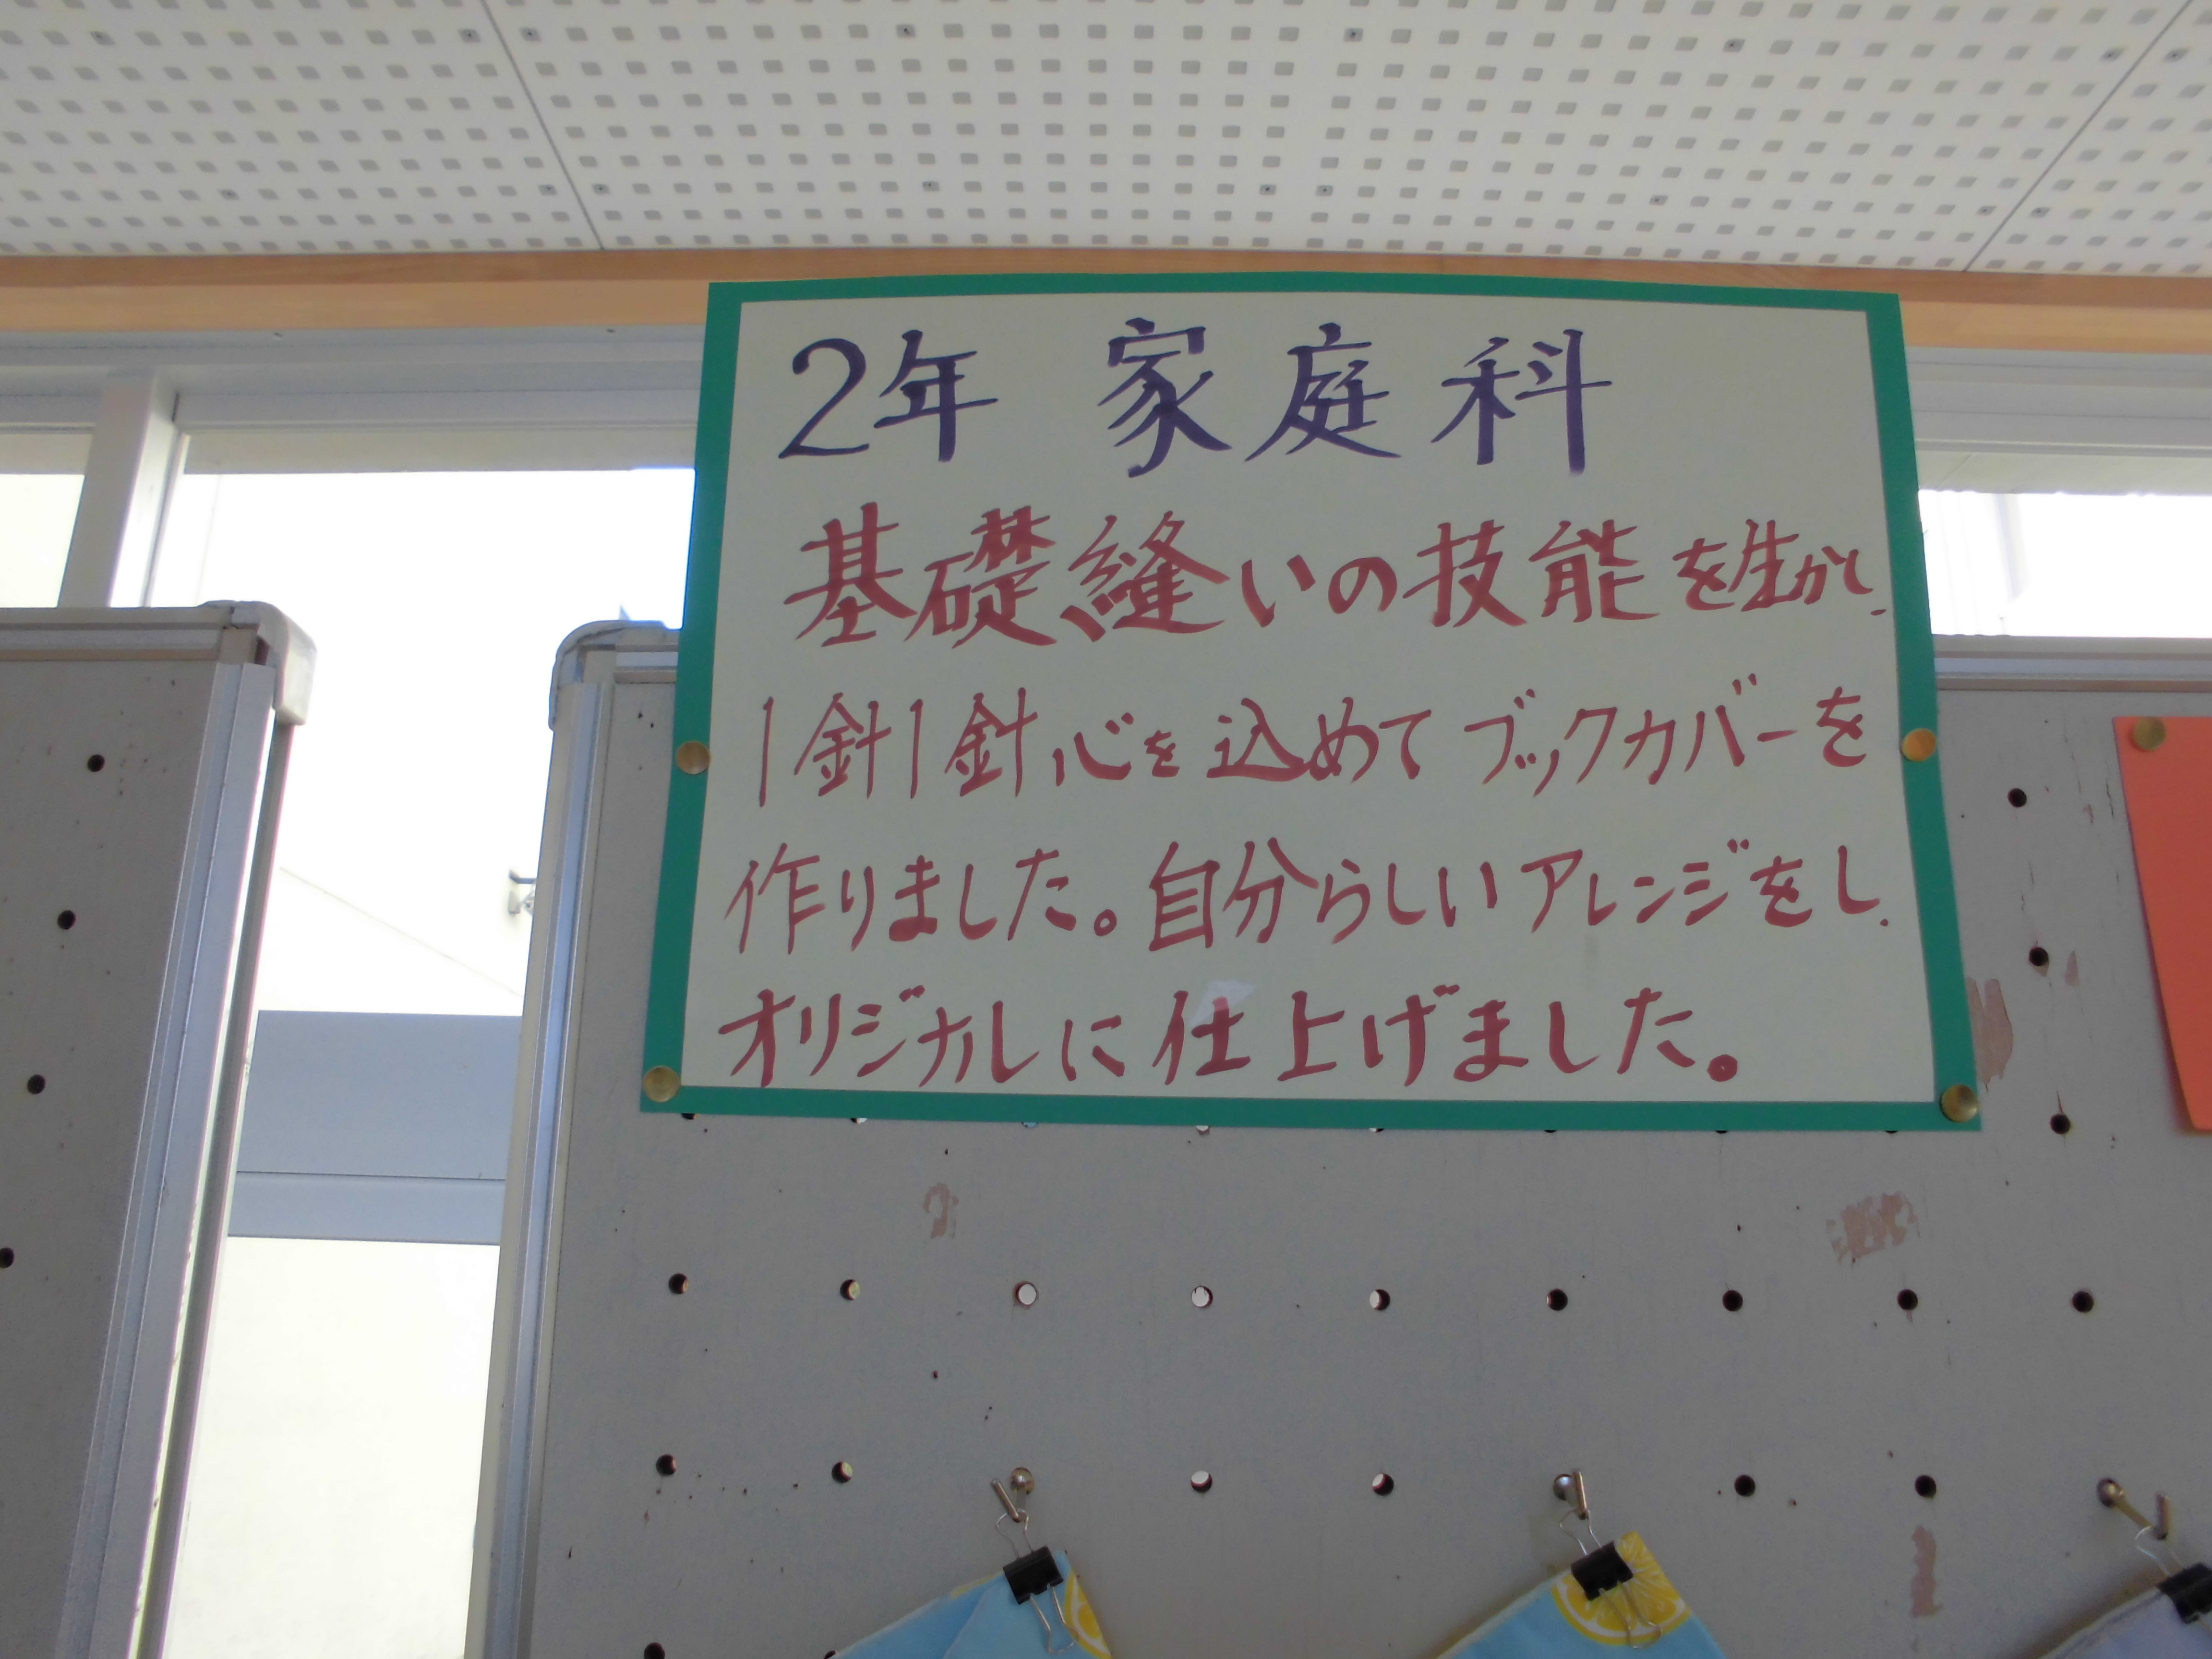 2年 家庭科
基礎縫いの技能を生かし、
1針1針心を込めてブックカバーを
作りました。自分らしいアレンジをし、
オリジナルに仕上げました。